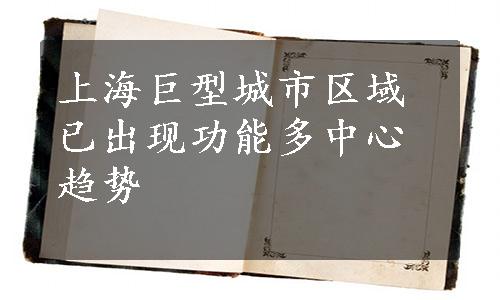 上海巨型城市区域
已出现功能多中心
趋势